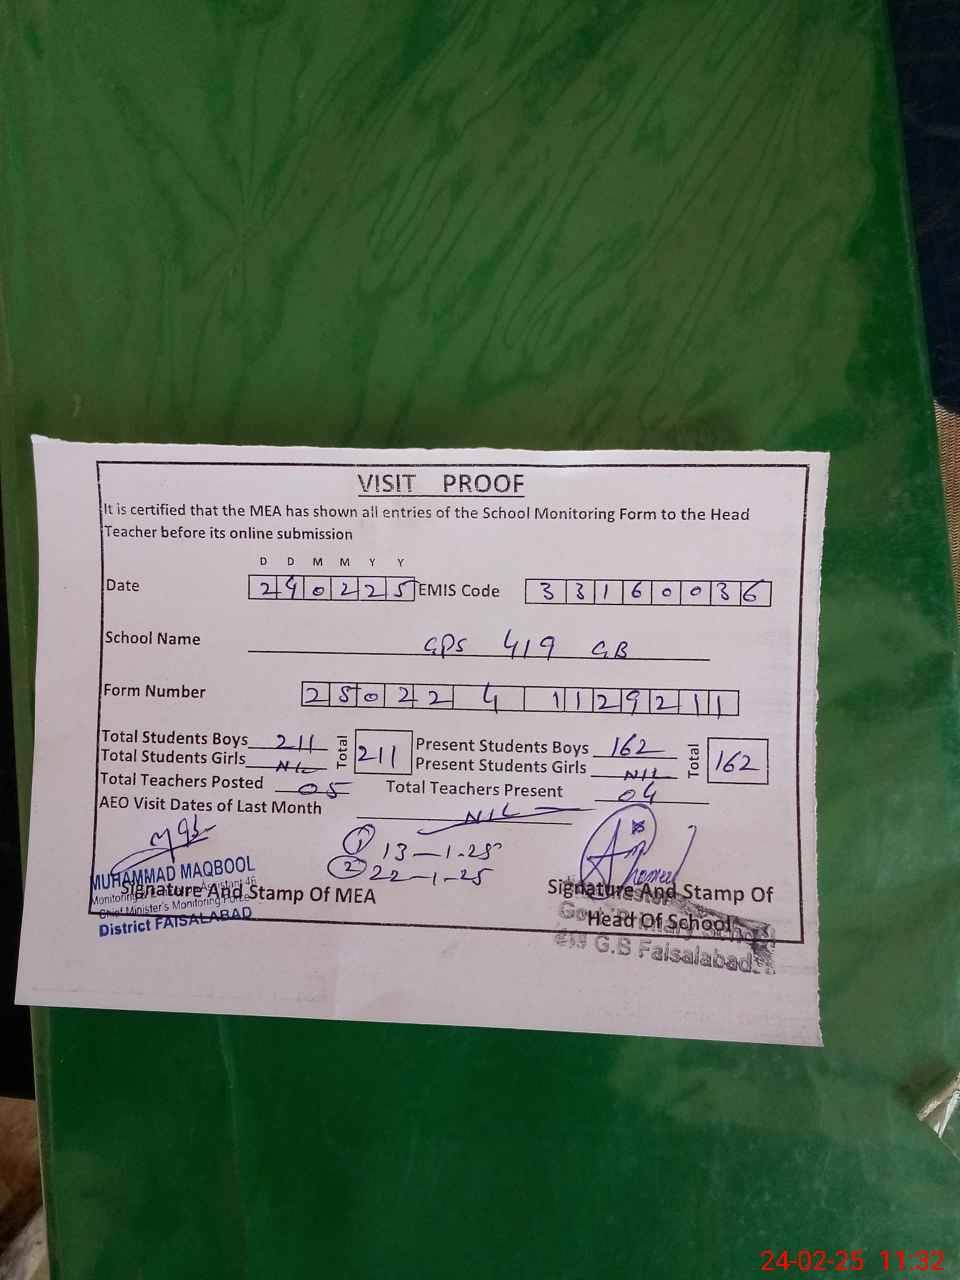 VISIT PROOF
It is certified that the MEA has shown all entries of the School Monitoring Form to the Head
Teacher before its online submission
D D M M Y Y
Date 240225 EMIS Code 33160036
School Name GPS 419 GB
Form Number 25022 4 1129211
Total Students Boys 211 Total 211 Present Students Boys 162 Total 162
Total Students Girls NIL Present Students Girls NIL
Total Teachers Posted 05 Total Teachers Present 04
AEO Visit Dates of Last Month NIL
1 13-1-25
2 22-1-25
MUHAMMAD MAQBOOL
Signature And Stamp Of MEA
Chief Minister's Monitoring Force
District FAISALABAD
Signature And Stamp Of
Head Of School
Govt. Primary School
419 G.B Faisalabad
24-02-25 11:32